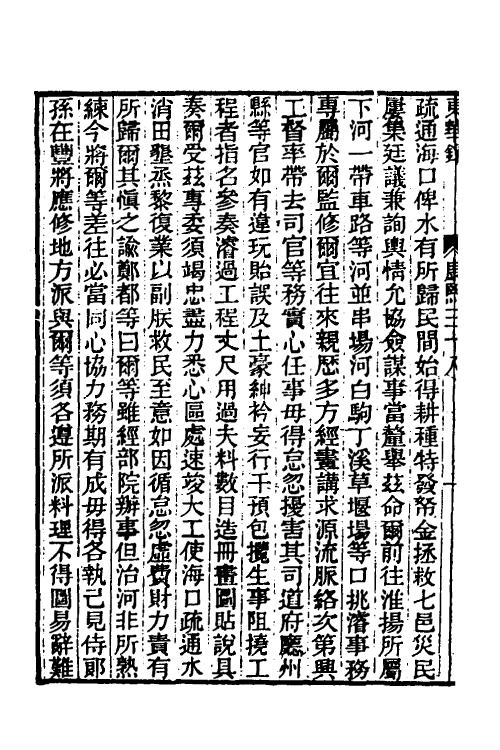 東華錄 康熙三十八 一
疏通海口俾水有所歸民間始得耕種特發帑金拯救七邑災民
屢集廷議兼詢輿情允協僉謀事當釐舉茲命爾前往淮揚所屬
下河一帶車路等河並串場河白駒丁溪草堰場等口挑濬事務
專屬於爾監修爾宜往來親歷多方經畫講求源流脈絡次第興
工督率帶去司官等務實心任事毋得怠忽擾害其司道府廳州
縣等官如有違玩貽誤及土豪紳衿妄行干預包攬生事阻撓工
程者指名參奏濬過工程丈尺用過夫料數目造冊畫圖貼說具
奏爾受茲專委須竭忠盡力悉心區處速竣大工使海口疏通水
消田墾烝黎復業以副朕救民至意如因循怠忽虛費財力責有
所歸爾其愼之諭鄭都等曰爾等雖經部院辦事但治河非所熟
練今將爾等差往必當同心協力務期有成毋得各執己見侍郎
孫在豐將應修地方派與爾等須各遵所派料理不得圖易辭難